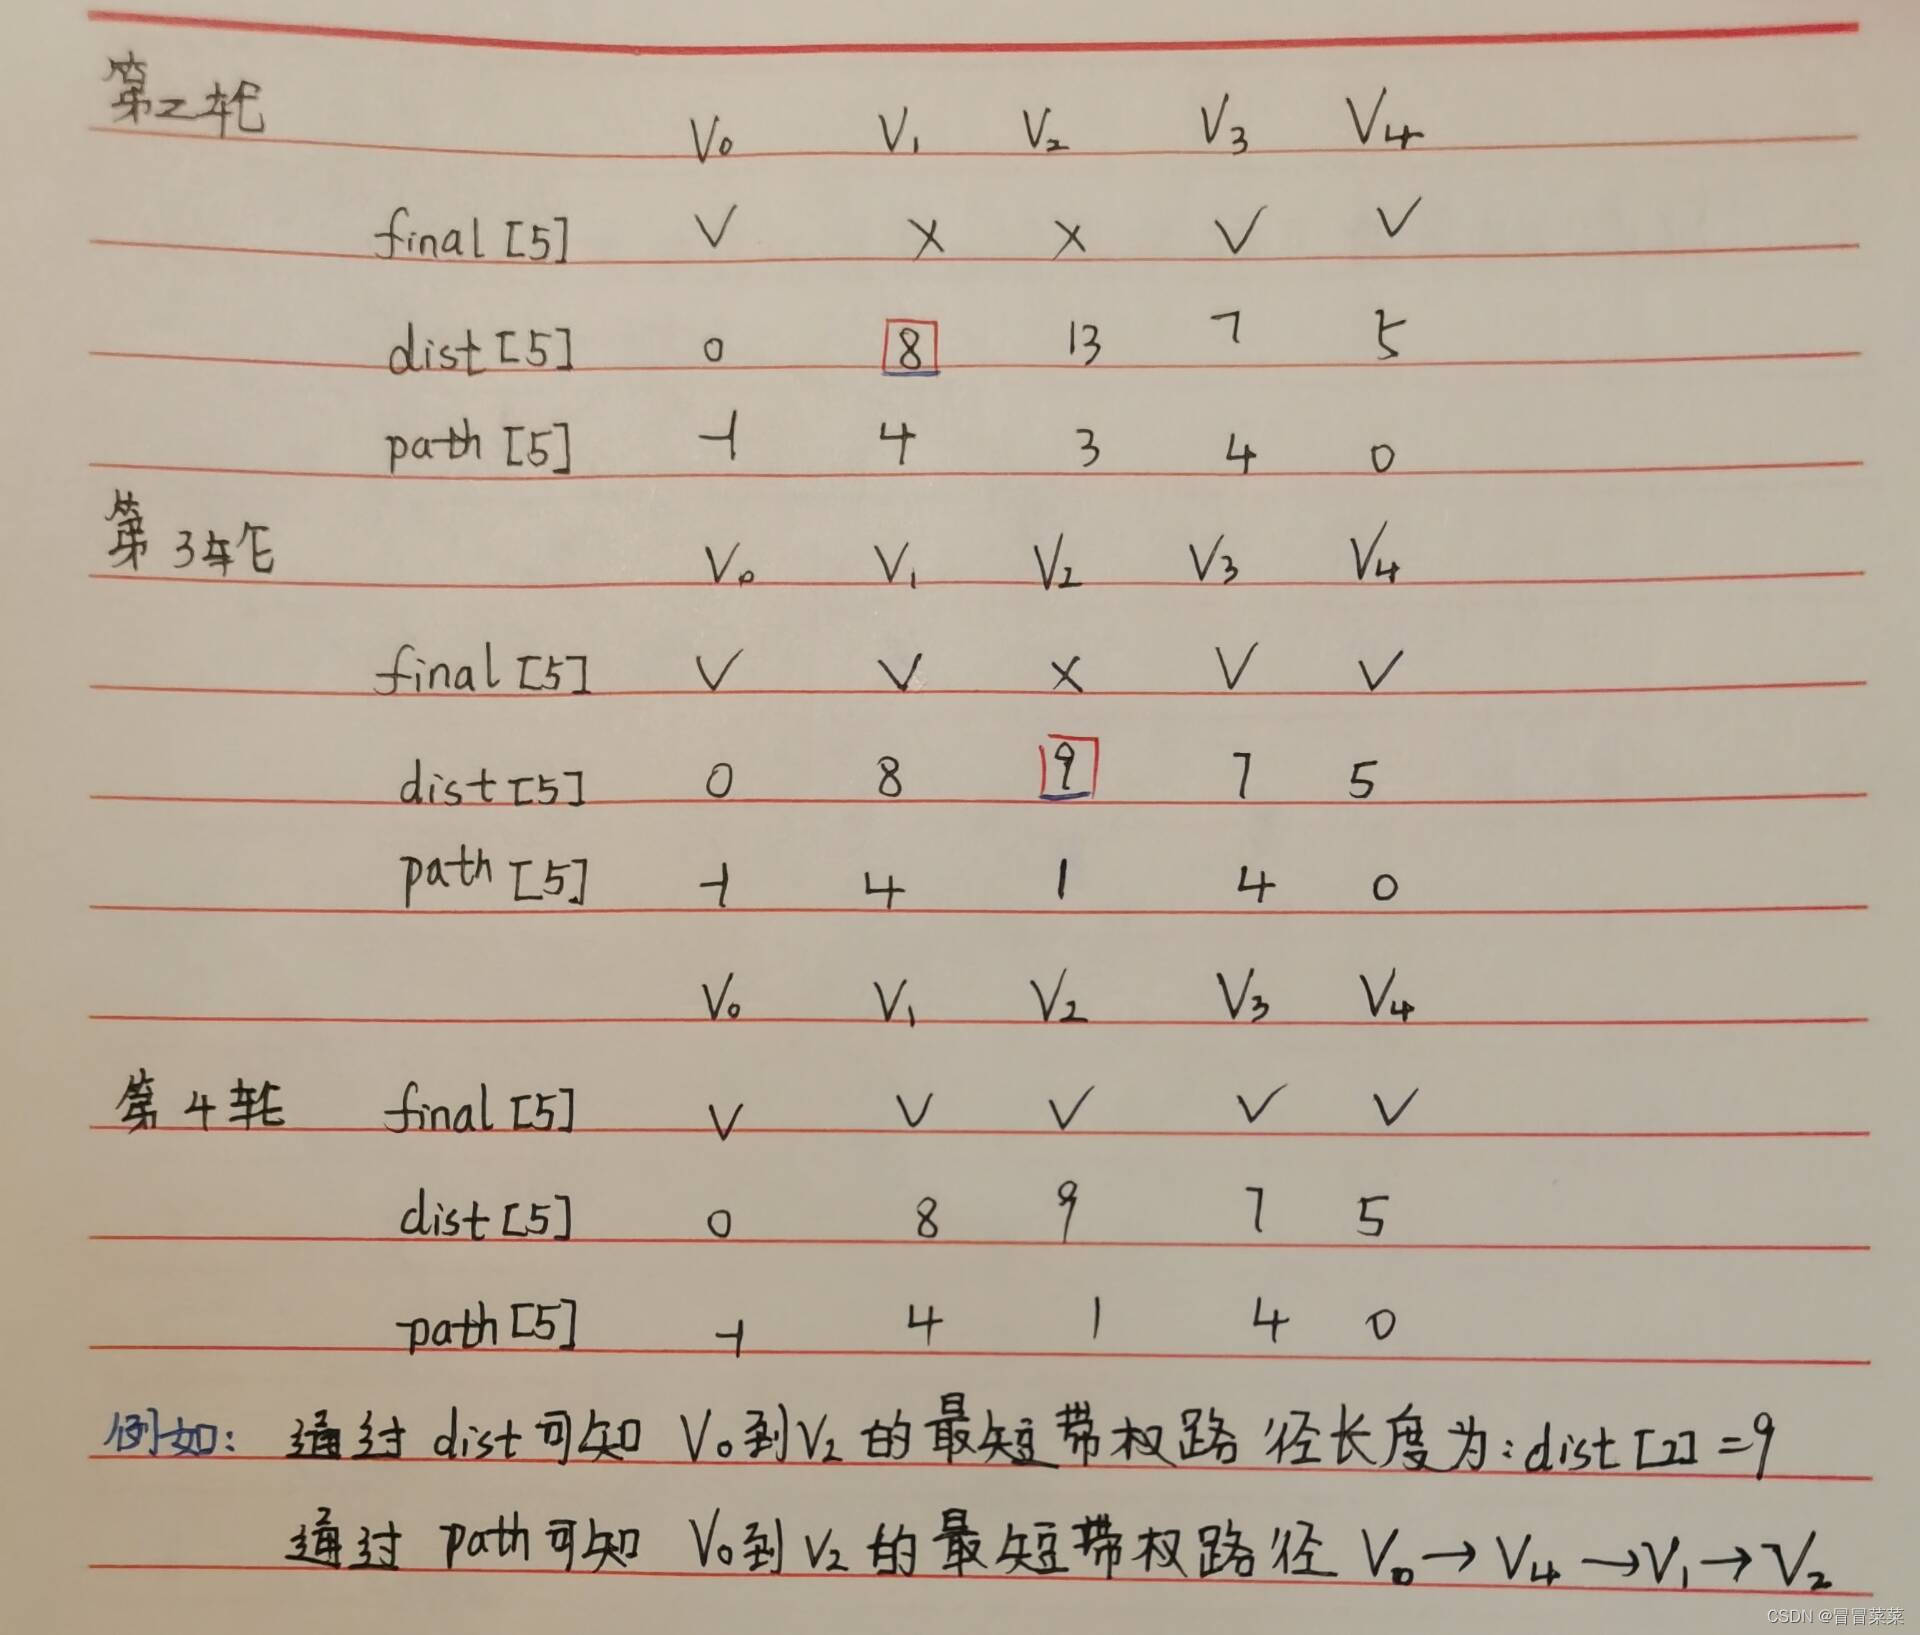 第2轮
V₀ V₁ V₂ V₃ V₄
final[5] √ × × √ √
dist[5] 0 8 13 7 5
path[5] -1 4 3 4 0
第3轮 V₀ V₁ V₂ V₃ V₄
final[5] √ √ × √ √
dist[5] 0 8 9 7 5
path[5] -1 4 1 4 0
V₀ V₁ V₂ V₃ V₄
第4轮 final[5] √ √ √ √ √
dist[5] 0 8 9 7 5
path[5] -1 4 1 4 0
例如: 通过 dist可知 V₀到V₂的最短带权路径长度为:dist[2]=9
通过 path可知 V₀到V₂的最短带权路径 V₀→V₄→V₁→V₂
CSDN @冒冒菜菜